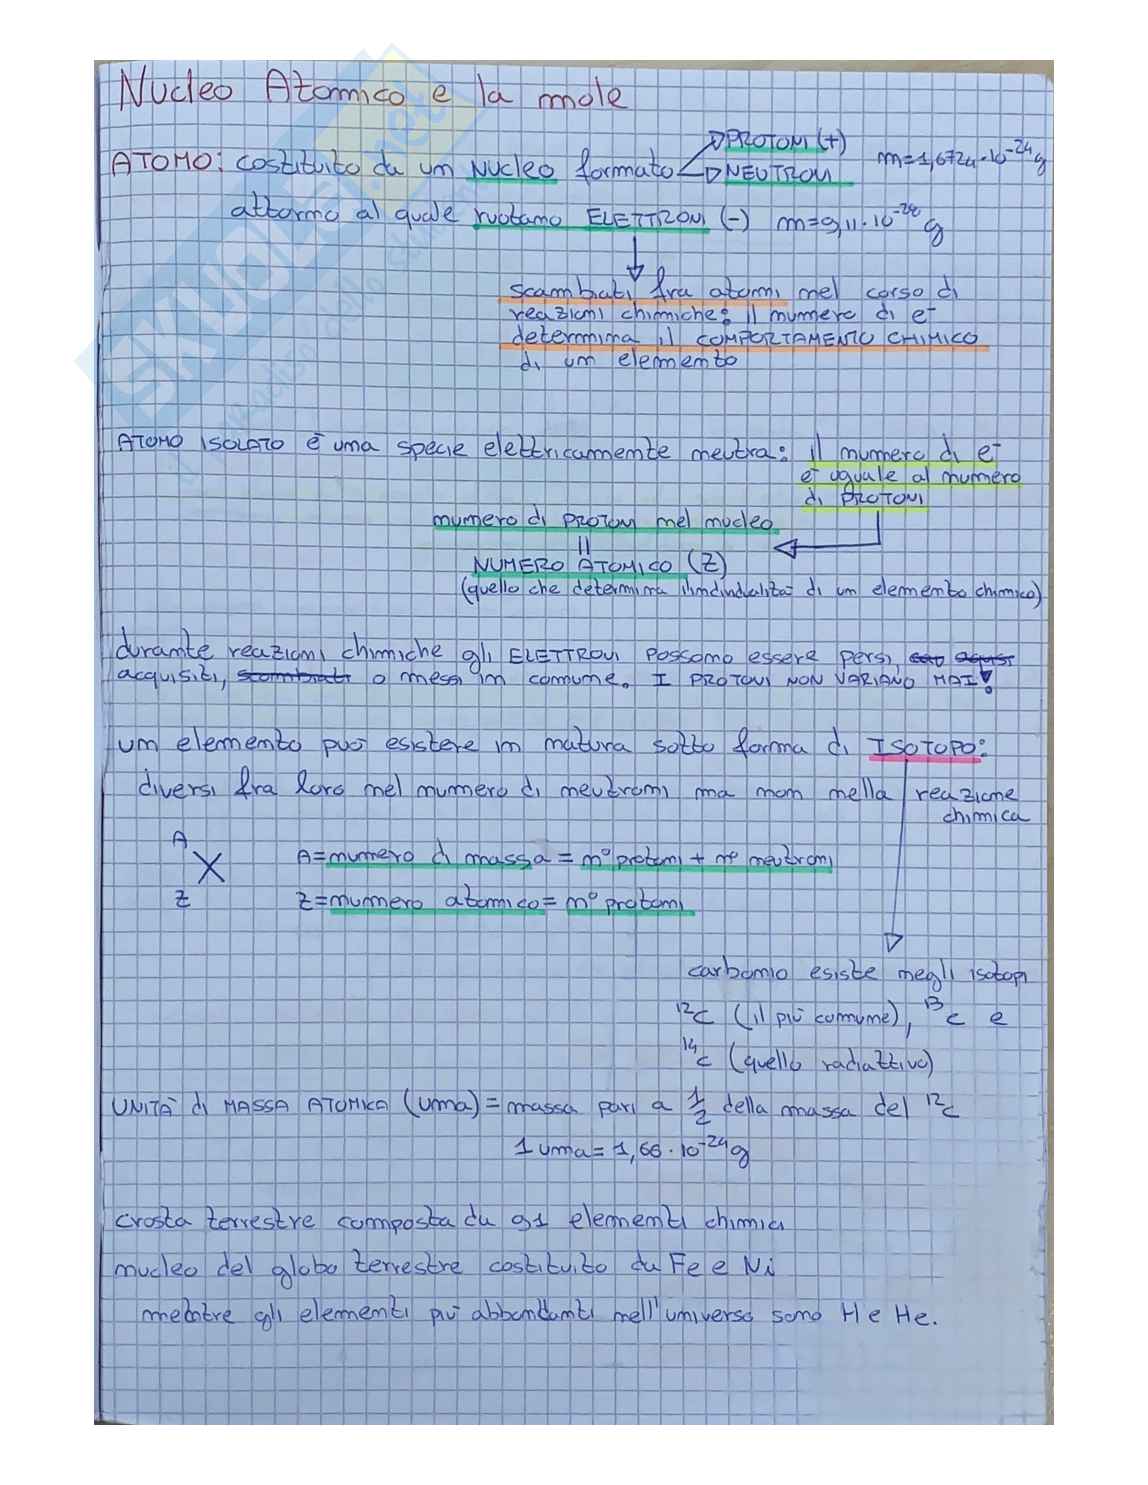 Nucleo Atomico e la mole
PROTONI (+)
ATOMO: costituito da un NUCLEO formato NEUTRONI m=1,6724·10⁻²⁴g
attorno al quale ruotano ELETTRONI (-) m=9,11·10⁻²⁸ g
scambiati fra atomi nel corso di
reazioni chimiche: il numero di e⁻
determina il COMPORTAMENTO CHIMICO
di un elemento
ATOMO ISOLATO è una specie elettricamente neutra: il numero di e⁻
è uguale al numero
di PROTONI
numero di PROTONI nel nucleo
=
NUMERO ATOMICO (Z)
(quello che determina di un elemento chimico)
durante reazioni chimiche gli ELETTRONI possono essere persi,
acquisiti, scambiati o messi in comune. I PROTONI NON VARIANO MAI!
un elemento può esistere in natura sotto forma di ISOTOPO:
diversi fra loro nel numero di neutroni ma non nella reazione
chimica
A
X A=numero di massa = n° protoni + n° neutroni
Z Z=numero atomico= n° protoni
carbonio esiste negli isotopi
¹²C (il più comune), ¹³C e
¹⁴C (quello radiattivo)
UNITÀ di MASSA ATOMICA (uma) = massa pari a 1/2 della massa del ¹²C
1 uma= 1,66·10⁻²⁴g
crosta terrestre composta da 91 elementi chimici
nucleo del globo terrestre costituito da Fe e Ni
mentre gli elementi più abbondanti nell'universo sono H e He.
SKUOLA.net